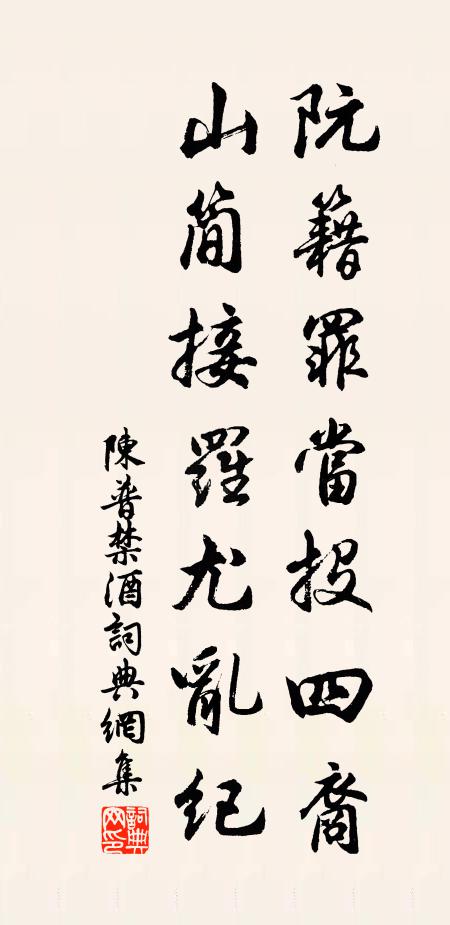 阮籍罪當投四裔
山简接羅尤亂紀
陳普禁酒詞典網集
詞典網印